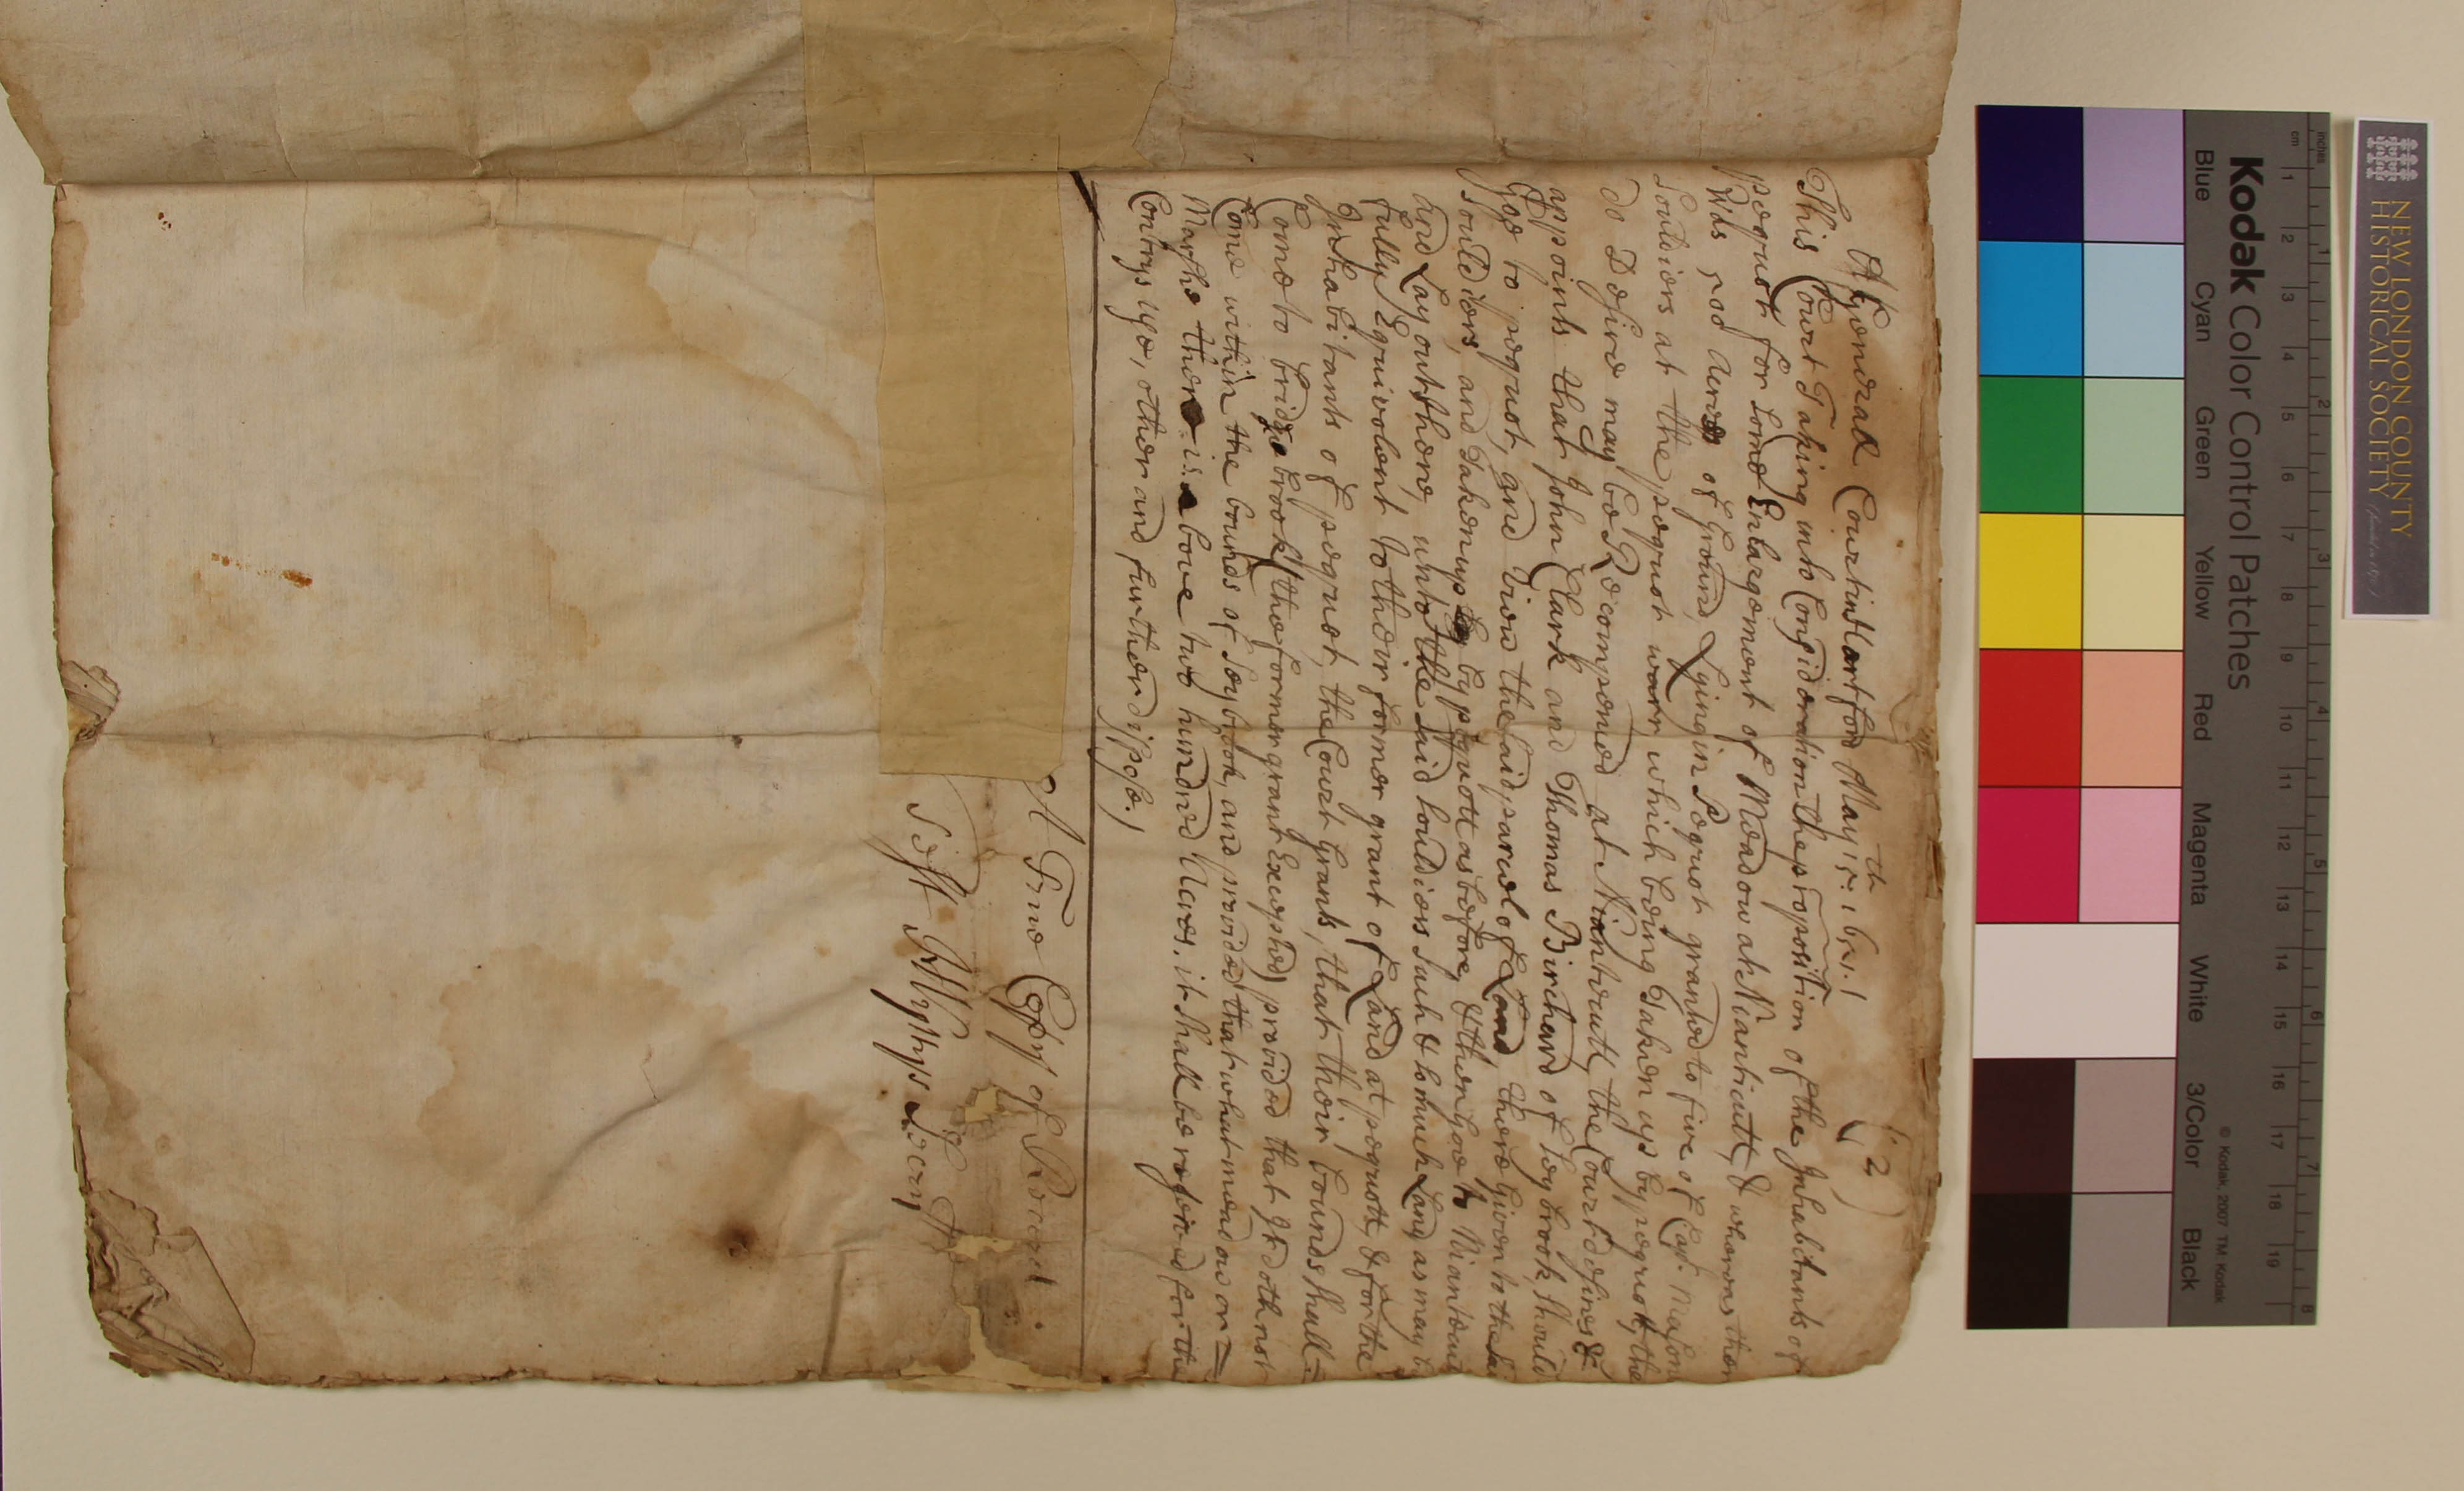 ( 2 )
At A Generall Court in Hartford May 15th 1651.
This Court Taking into Consideration the proposition of the Inhabitants of
pequot for some Enlargement of Meadow at Nianticutt, & whereas ther
was 500 Acres of Ground Lying in Pequot granted to five of Capt. Masons
Souldiers at the pequot warr, which being Taken up by pequott, the
do Desire may be Recompenced at Niantcutt, the Court desires &
appoints that John Clark and Thomas Birchard of Seybrook should
goe to pequot, and View the said parcel of Land there Given to the sai
Souldiers, and Taken up by pequott as before, & then goe to Niantcut
and Lay out there, unto the said souldiers such & so much Land, as may b
fully Equivolent to their former grant of Land at pequott, & for the
Inhabitants of pequot, the Court Grants, that their bounds shall =
Come to bridge brook (the former grant Excepted) provided that It doth not
Come within the bounds of Seybrook, and provided that what meadow or =
Marshe there is above two hundred Acres, it shall be reserved for the
Contrys Use, other and further dispose.
A True Copy of Record
Test
Wyllys Secry
NEW LONDON COUNTY
HISTORICAL SOCIETY
Kodak Color Control Patches
© Kodak, 2007 TM: Kodak
Blue Cyan Green Yellow Red Magenta White 3/Color Black
inches 1 2 3 4 5 6 7 8
cm 1 2 3 4 5 6 7 8 9 10 11 12 13 14 15 16 17 18 19